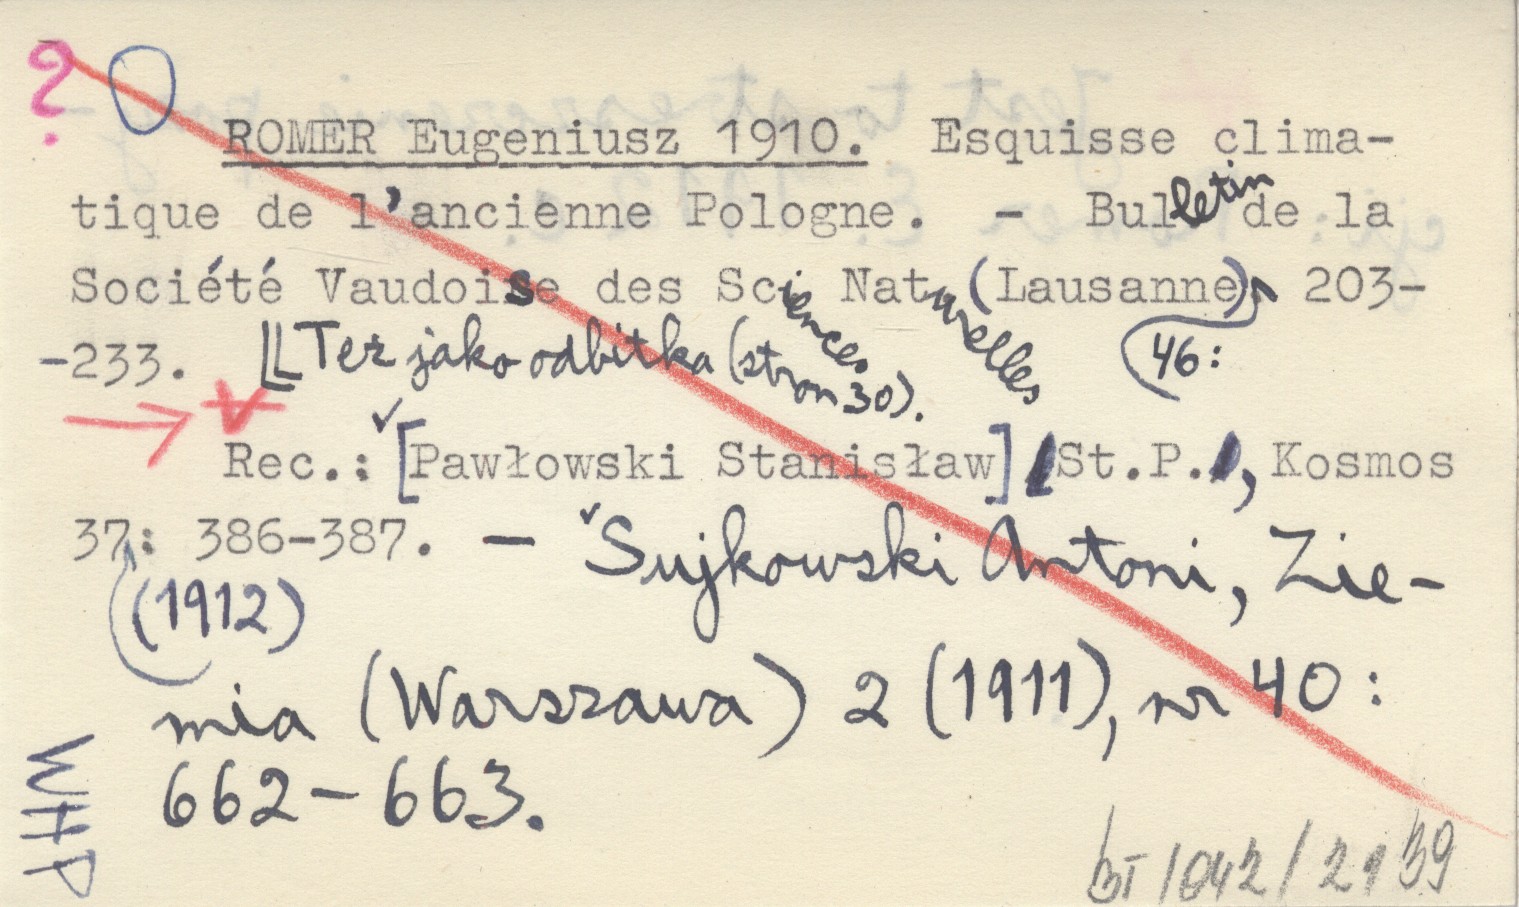 ?
ROMER Eugeniusz 1910. Esquisse clima-
tique de l'ancienne Pologne. - Bulletin de la
Société Vaudoise des Sciences Naturelles (Lausanne) 46: 203-
-233. Też jako odbitka (stron 30).
Rec.: [Pawłowski Stanisław] St.P., Kosmos
37 (1912): 386-387. — Sujkowski Antoni, Zie-
mia (Warszawa) 2 (1911), nr 40:
662-663.
WHP